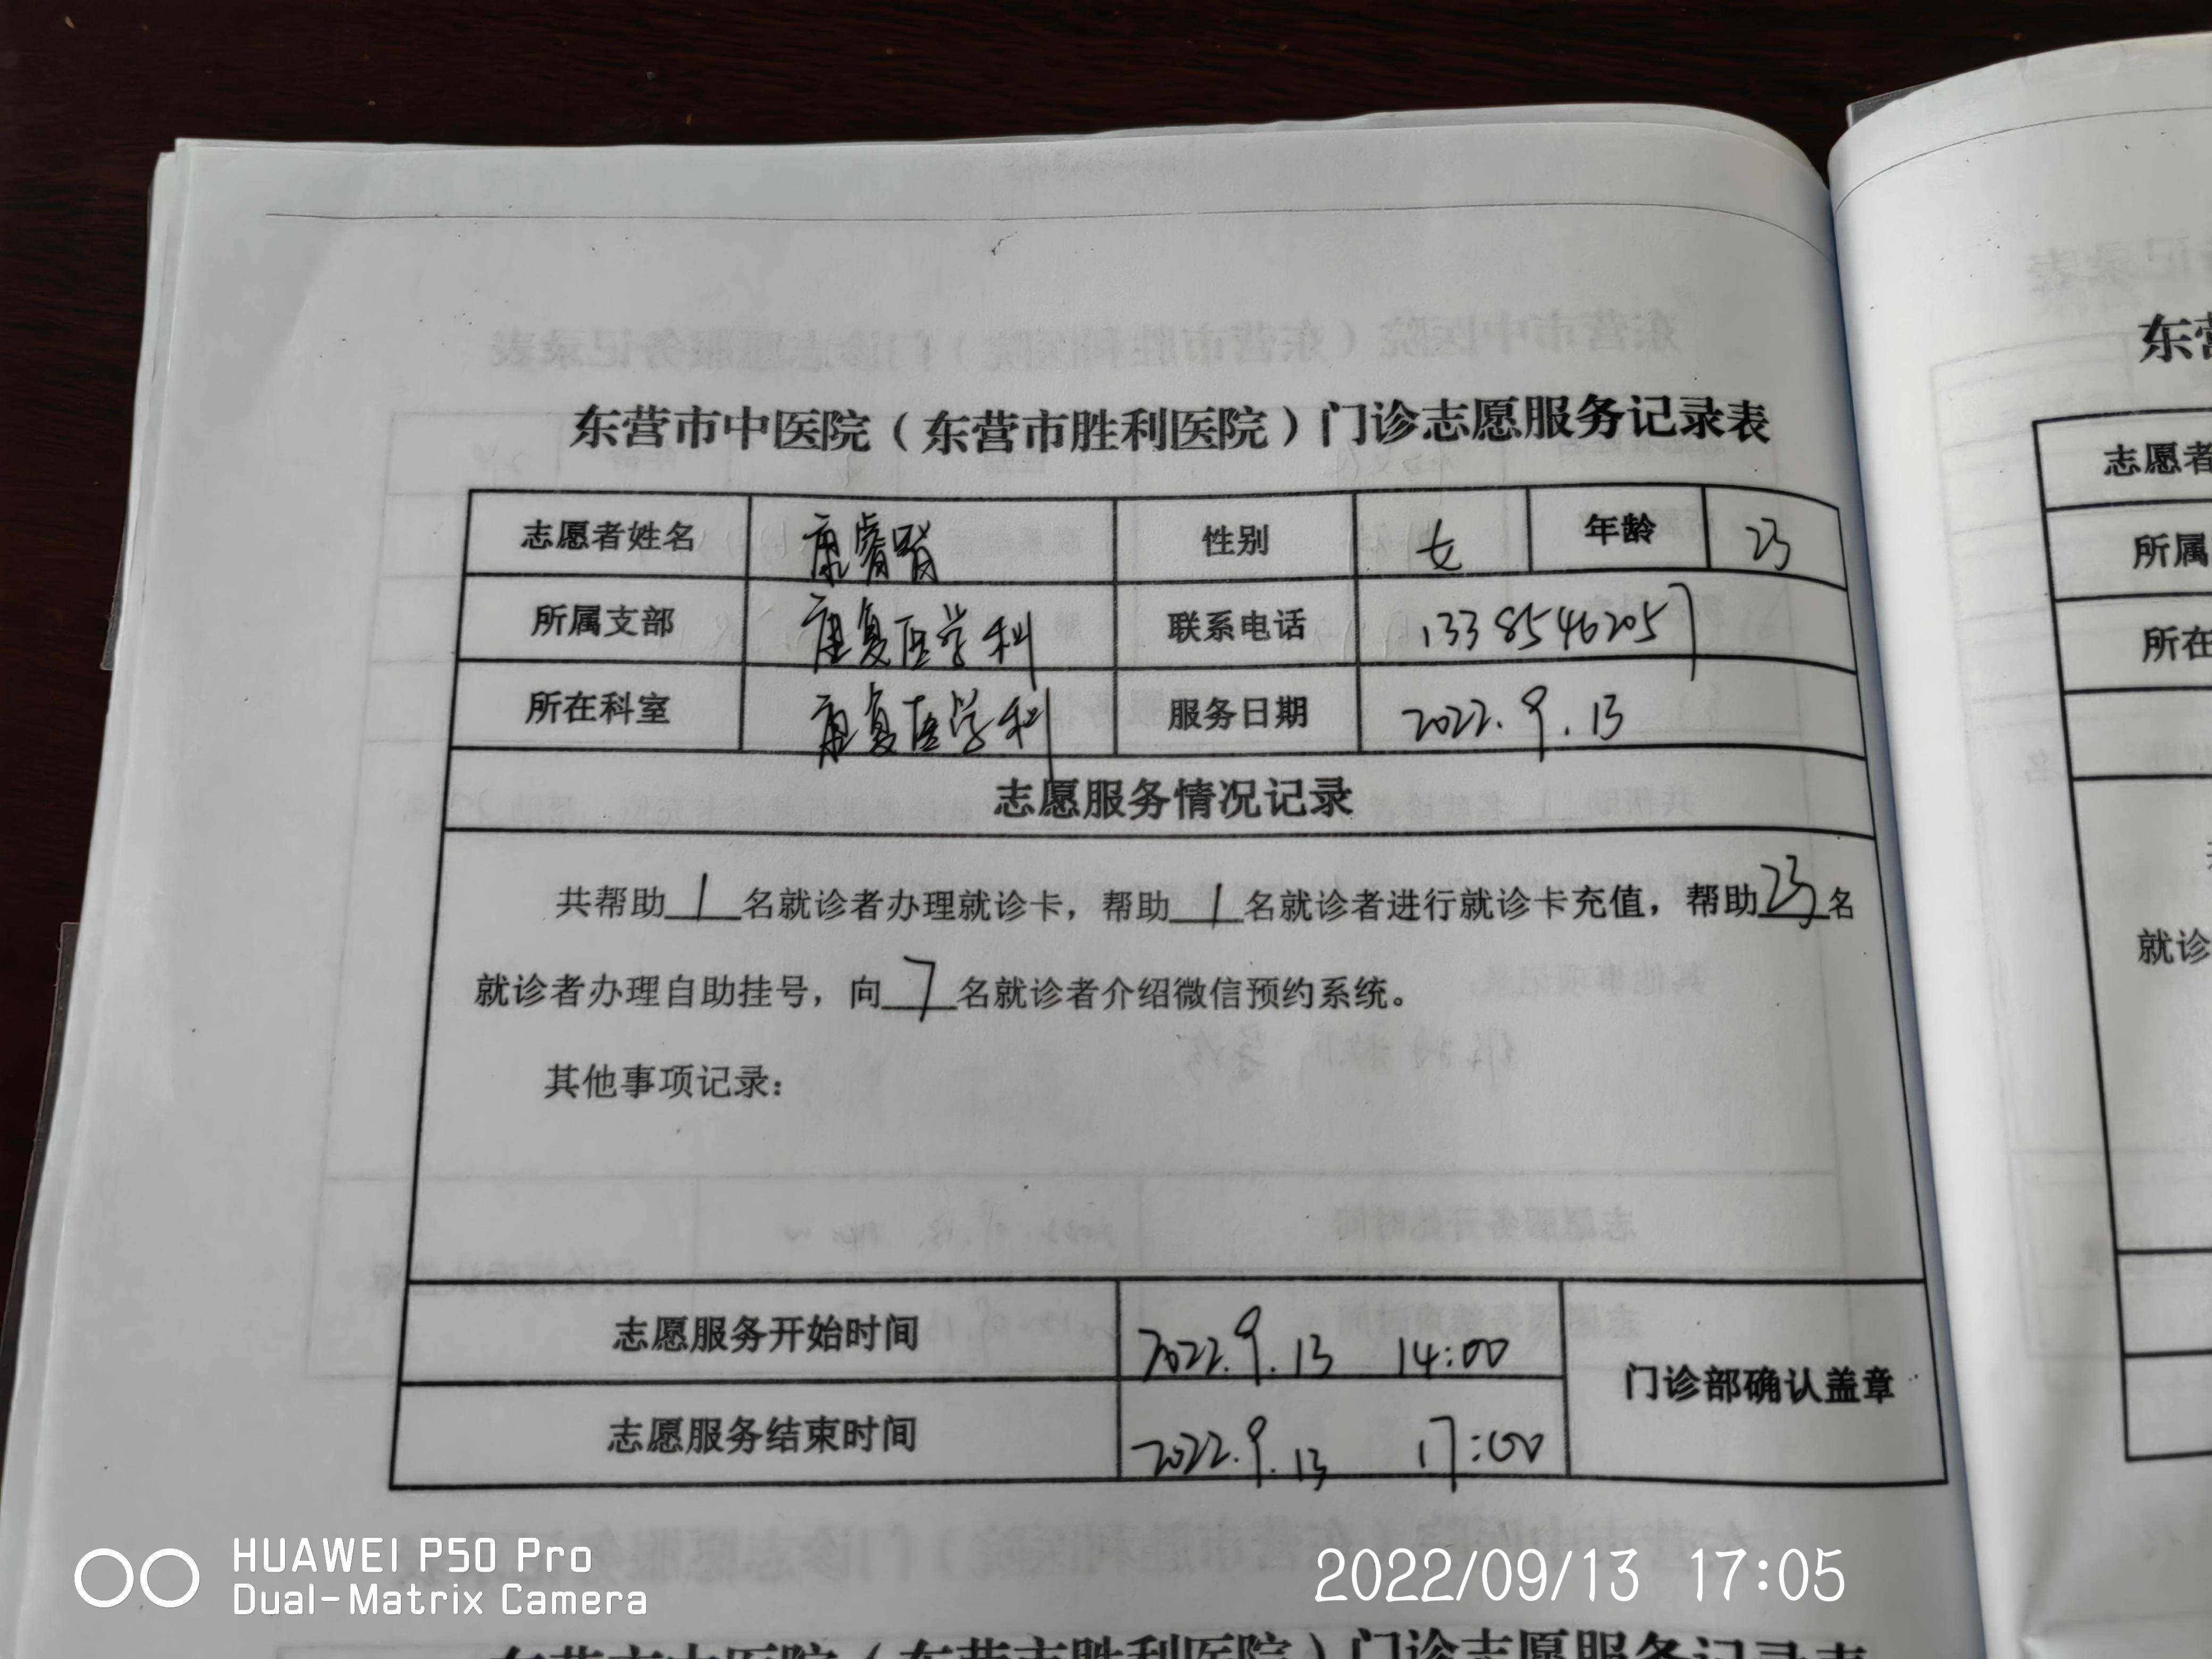 东营市中医院（东营市胜利医院）门诊志愿服务记录表
志愿者姓名 康睿 性别 女 年龄 23
所属支部 康复医学科 联系电话 13385462057
所在科室 康复医学科 服务日期 2022.9.13
志愿服务情况记录
共帮助 1 名就诊者办理就诊卡，帮助 1 名就诊者进行就诊卡充值，帮助 23 名
就诊者办理自助挂号，向 7 名就诊者介绍微信预约系统。
其他事项记录：
志愿服务开始时间 2022.9.13 14:00
门诊部确认盖章
志愿服务结束时间 2022.9.13 17:00
东营
志愿者
所属
所在
就诊
HUAWEI P50 Pro
Dual-Matrix Camera
2022/09/13 17:05
东营市中医院（东营市胜利医院）门诊志愿服务记录表